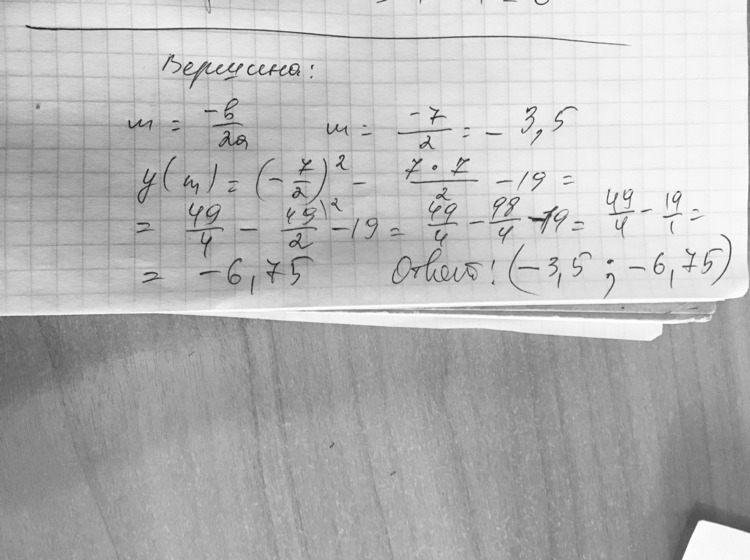 Вершина:
m = -b/2a m = -7/2 = -3,5
y(m) = (-7/2)² - 7·7/2 - 19 =
= 49/4 - 49/2 \2 - 19 = 49/4 - 98/4 - 19 = 49/4 - 19/1 =
= -6,75 Ответ: (-3,5 ; -6,75)